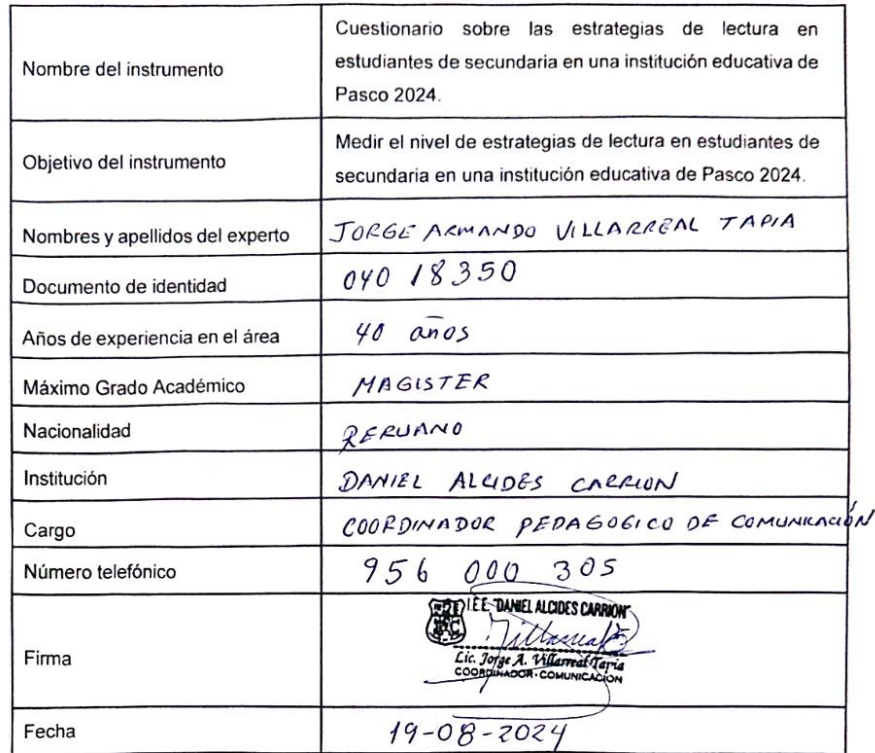 Nombre del instrumento
Cuestionario sobre las estrategias de lectura en
estudiantes de secundaria en una institución educativa de
Pasco 2024.
Objetivo del instrumento
Medir el nivel de estrategias de lectura en estudiantes de
secundaria en una institución educativa de Pasco 2024.
Nombres y apellidos del experto
JORGE ARMANDO VILLARREAL TAPIA
Documento de identidad
040 18350
Años de experiencia en el área
40 años
Máximo Grado Académico
MAGISTER
Nacionalidad
PERUANO
Institución
DANIEL ALCIDES CARRION
Cargo
COORDINADOR PEDAGOGICO DE COMUNICACIÓN
Número telefónico
956 000 305
Firma
I.E.E. "DANIEL ALCIDES CARRION"
Lic. Jorge A. Villarreal Tapia
COORDINADOR - COMUNICACION
Fecha
19-08-2024